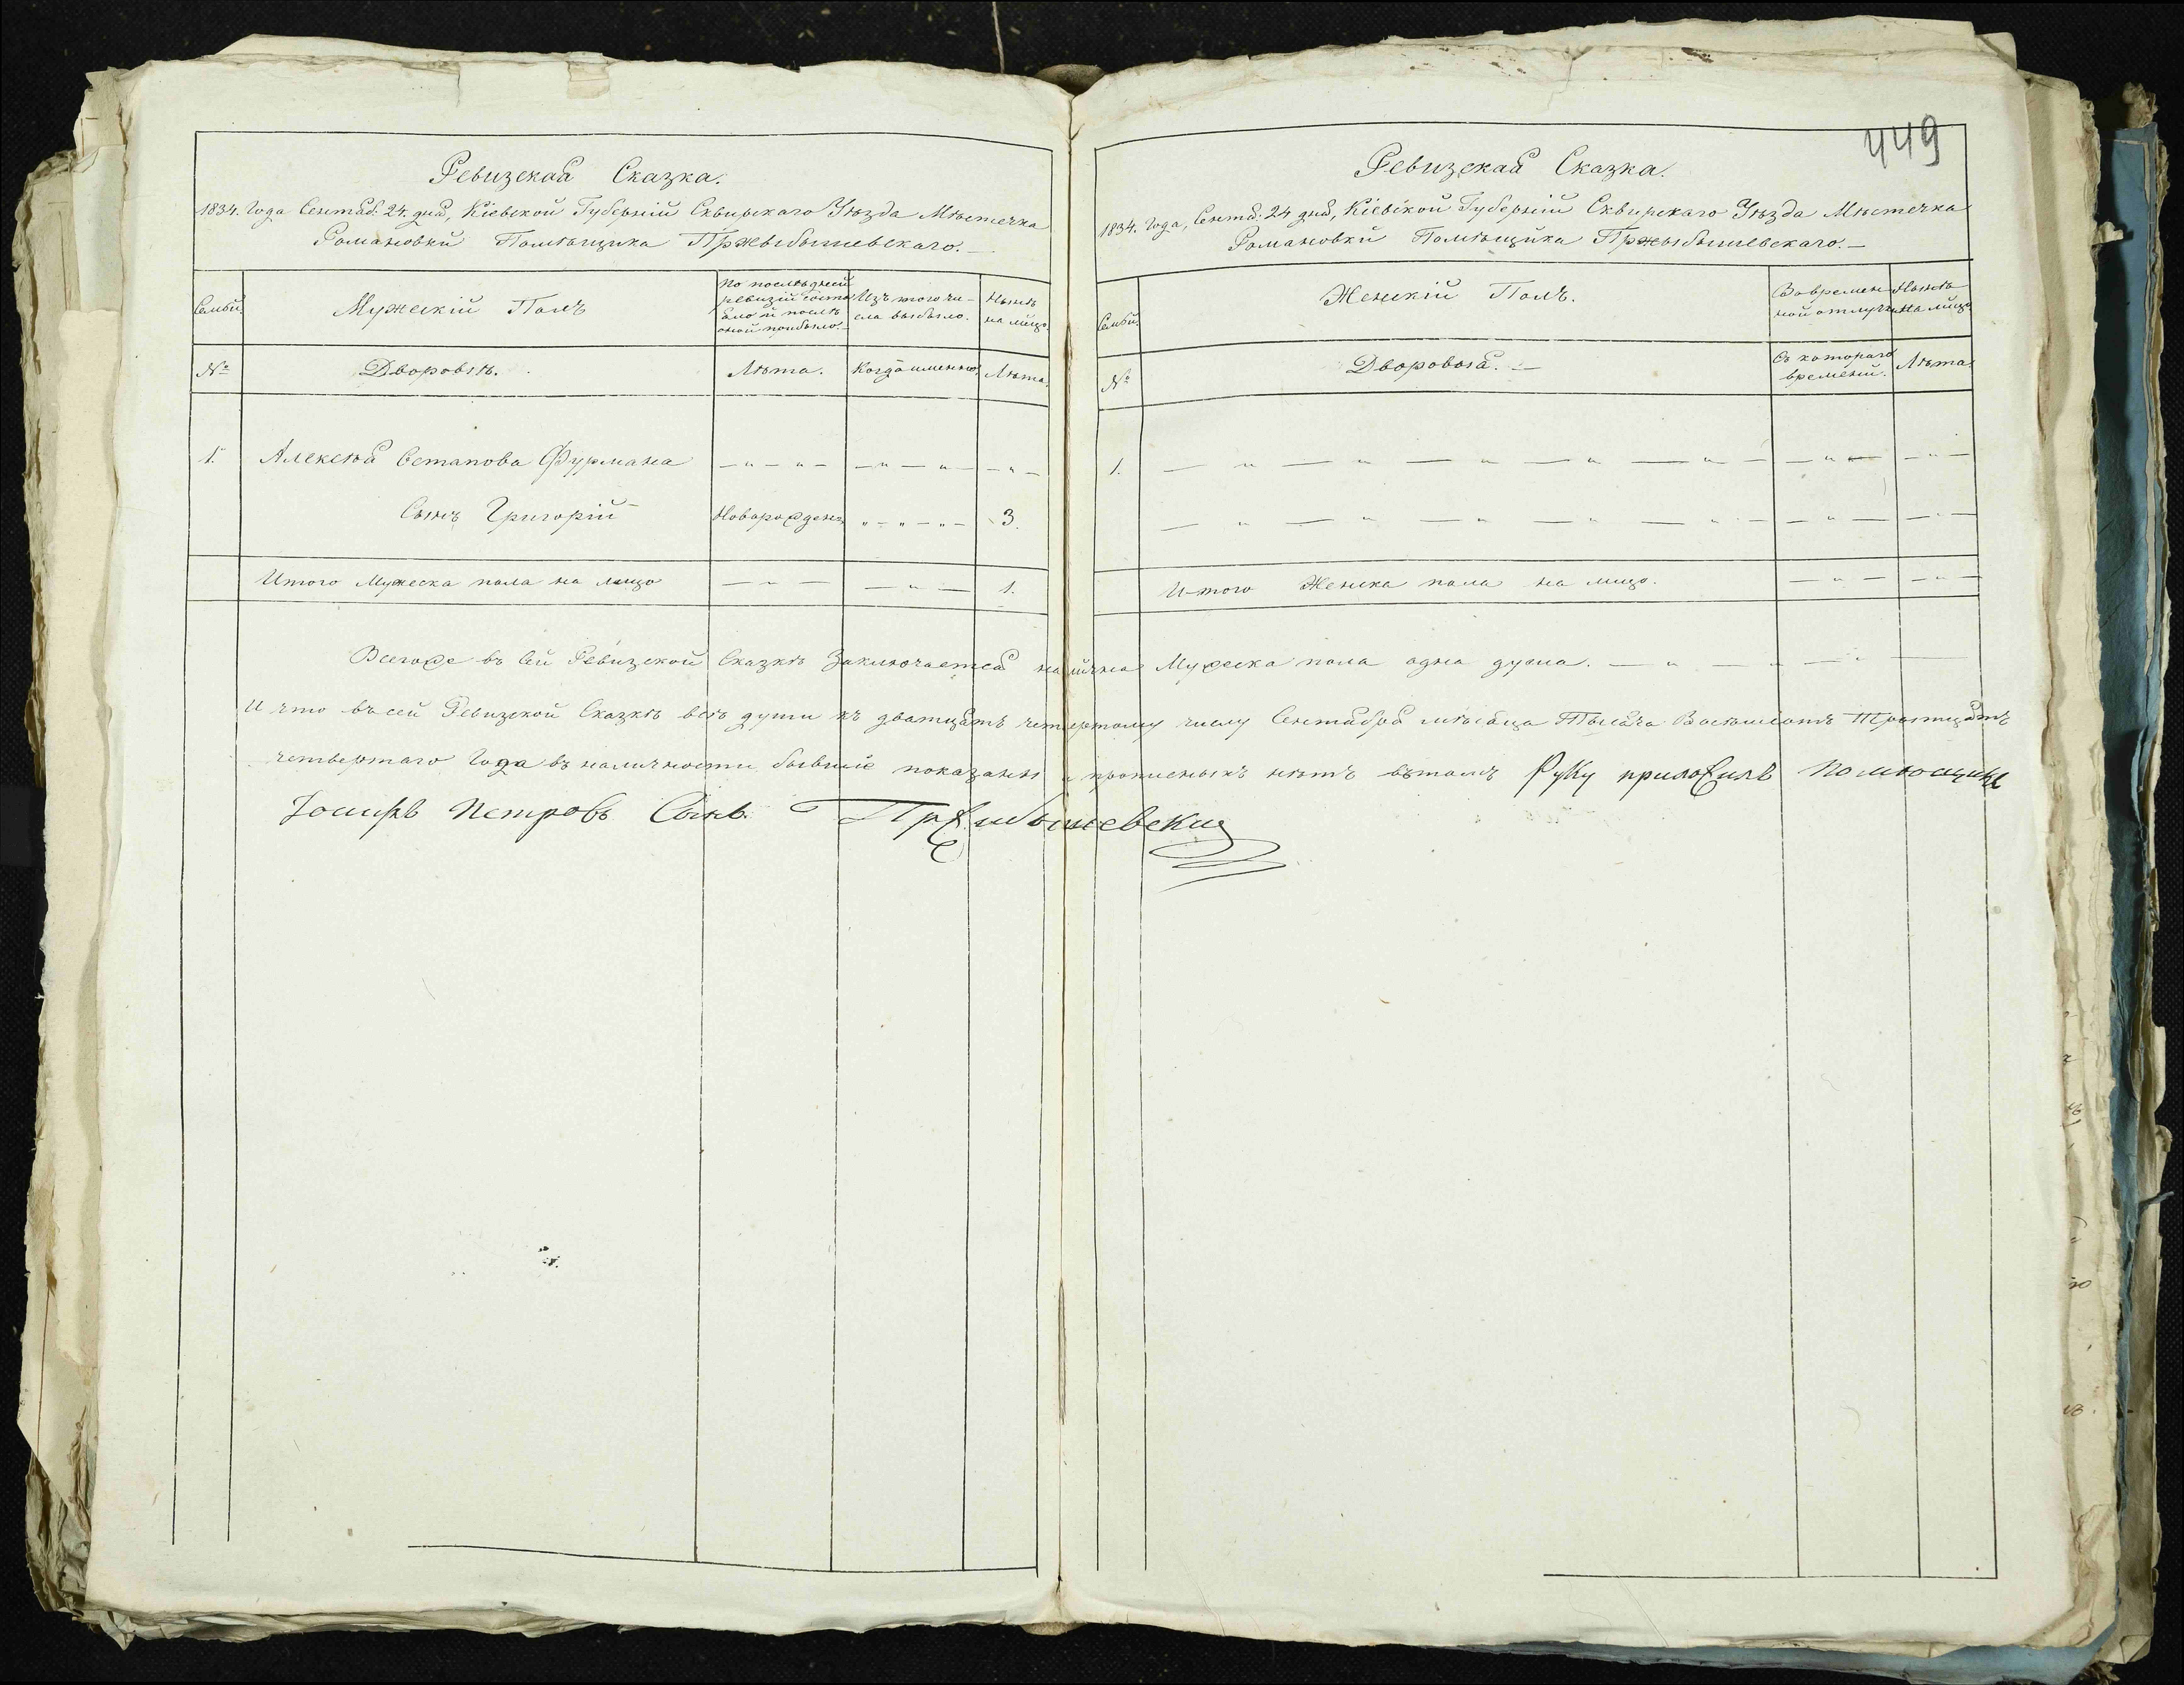 Ревизская Сказка.
1834. Года Сентяб: 24. дня, Кіевской Губерніи Сквирскаго Уѣзда Мѣстечка
Романовки Помѣщика Пржыбышевскаго.
Семьи.
Мужескій Полъ
По послѣдней
ревизіи состо
яло и послѣ
оной прибыло.
Изъ того чи-
сла выбыло.
Нынѣ
на лицо.
№
Дворовіѣ.
Лѣта.
Когда имянно.
Лѣта.
1. Алексѣя Сетапова Фурмана — " — " — — " — " — — " —
Сынъ Григорій Новорожденъ " — " — " — 3.
Итого Мужеска пола на лицо — " — — " — 1.
449
Ревизская Сказка.
1834. Года, Сентя: 24 дня, Кіевской Губерніи Сквирскаго Уѣзда Мѣстечка
Романовки Помѣщика Пржыбышевскаго. —
Семьи.
Женскій Полъ.
Вовремен
ной отлучкѣ
Нынѣ
на лицо
№
Дворовыя. —
Съ котораго
времени.
Лѣта.
1. — " — " — " — " — " — — " — — " —
— " — " — " — " — " — — " — — " —
Итого Женска пола на лицо. — " — — " —
Всегоже въ сей Ревизской Сказкѣ Заключается налична Мужеска пола одна душа. — " — " — " —
И что въ сей Ревизской Сказкѣ всѣ души къ дватцать четвертому числу Сентября мѣсяца Тысяча Восѣмсотъ Тритцать
четвертаго Года въ наличности бывшіе показаны и прописныхъ нѣтъ вътомъ Руку приложилъ помѣощикъ
Іосифъ Петровъ Сынъ Пржибышевский